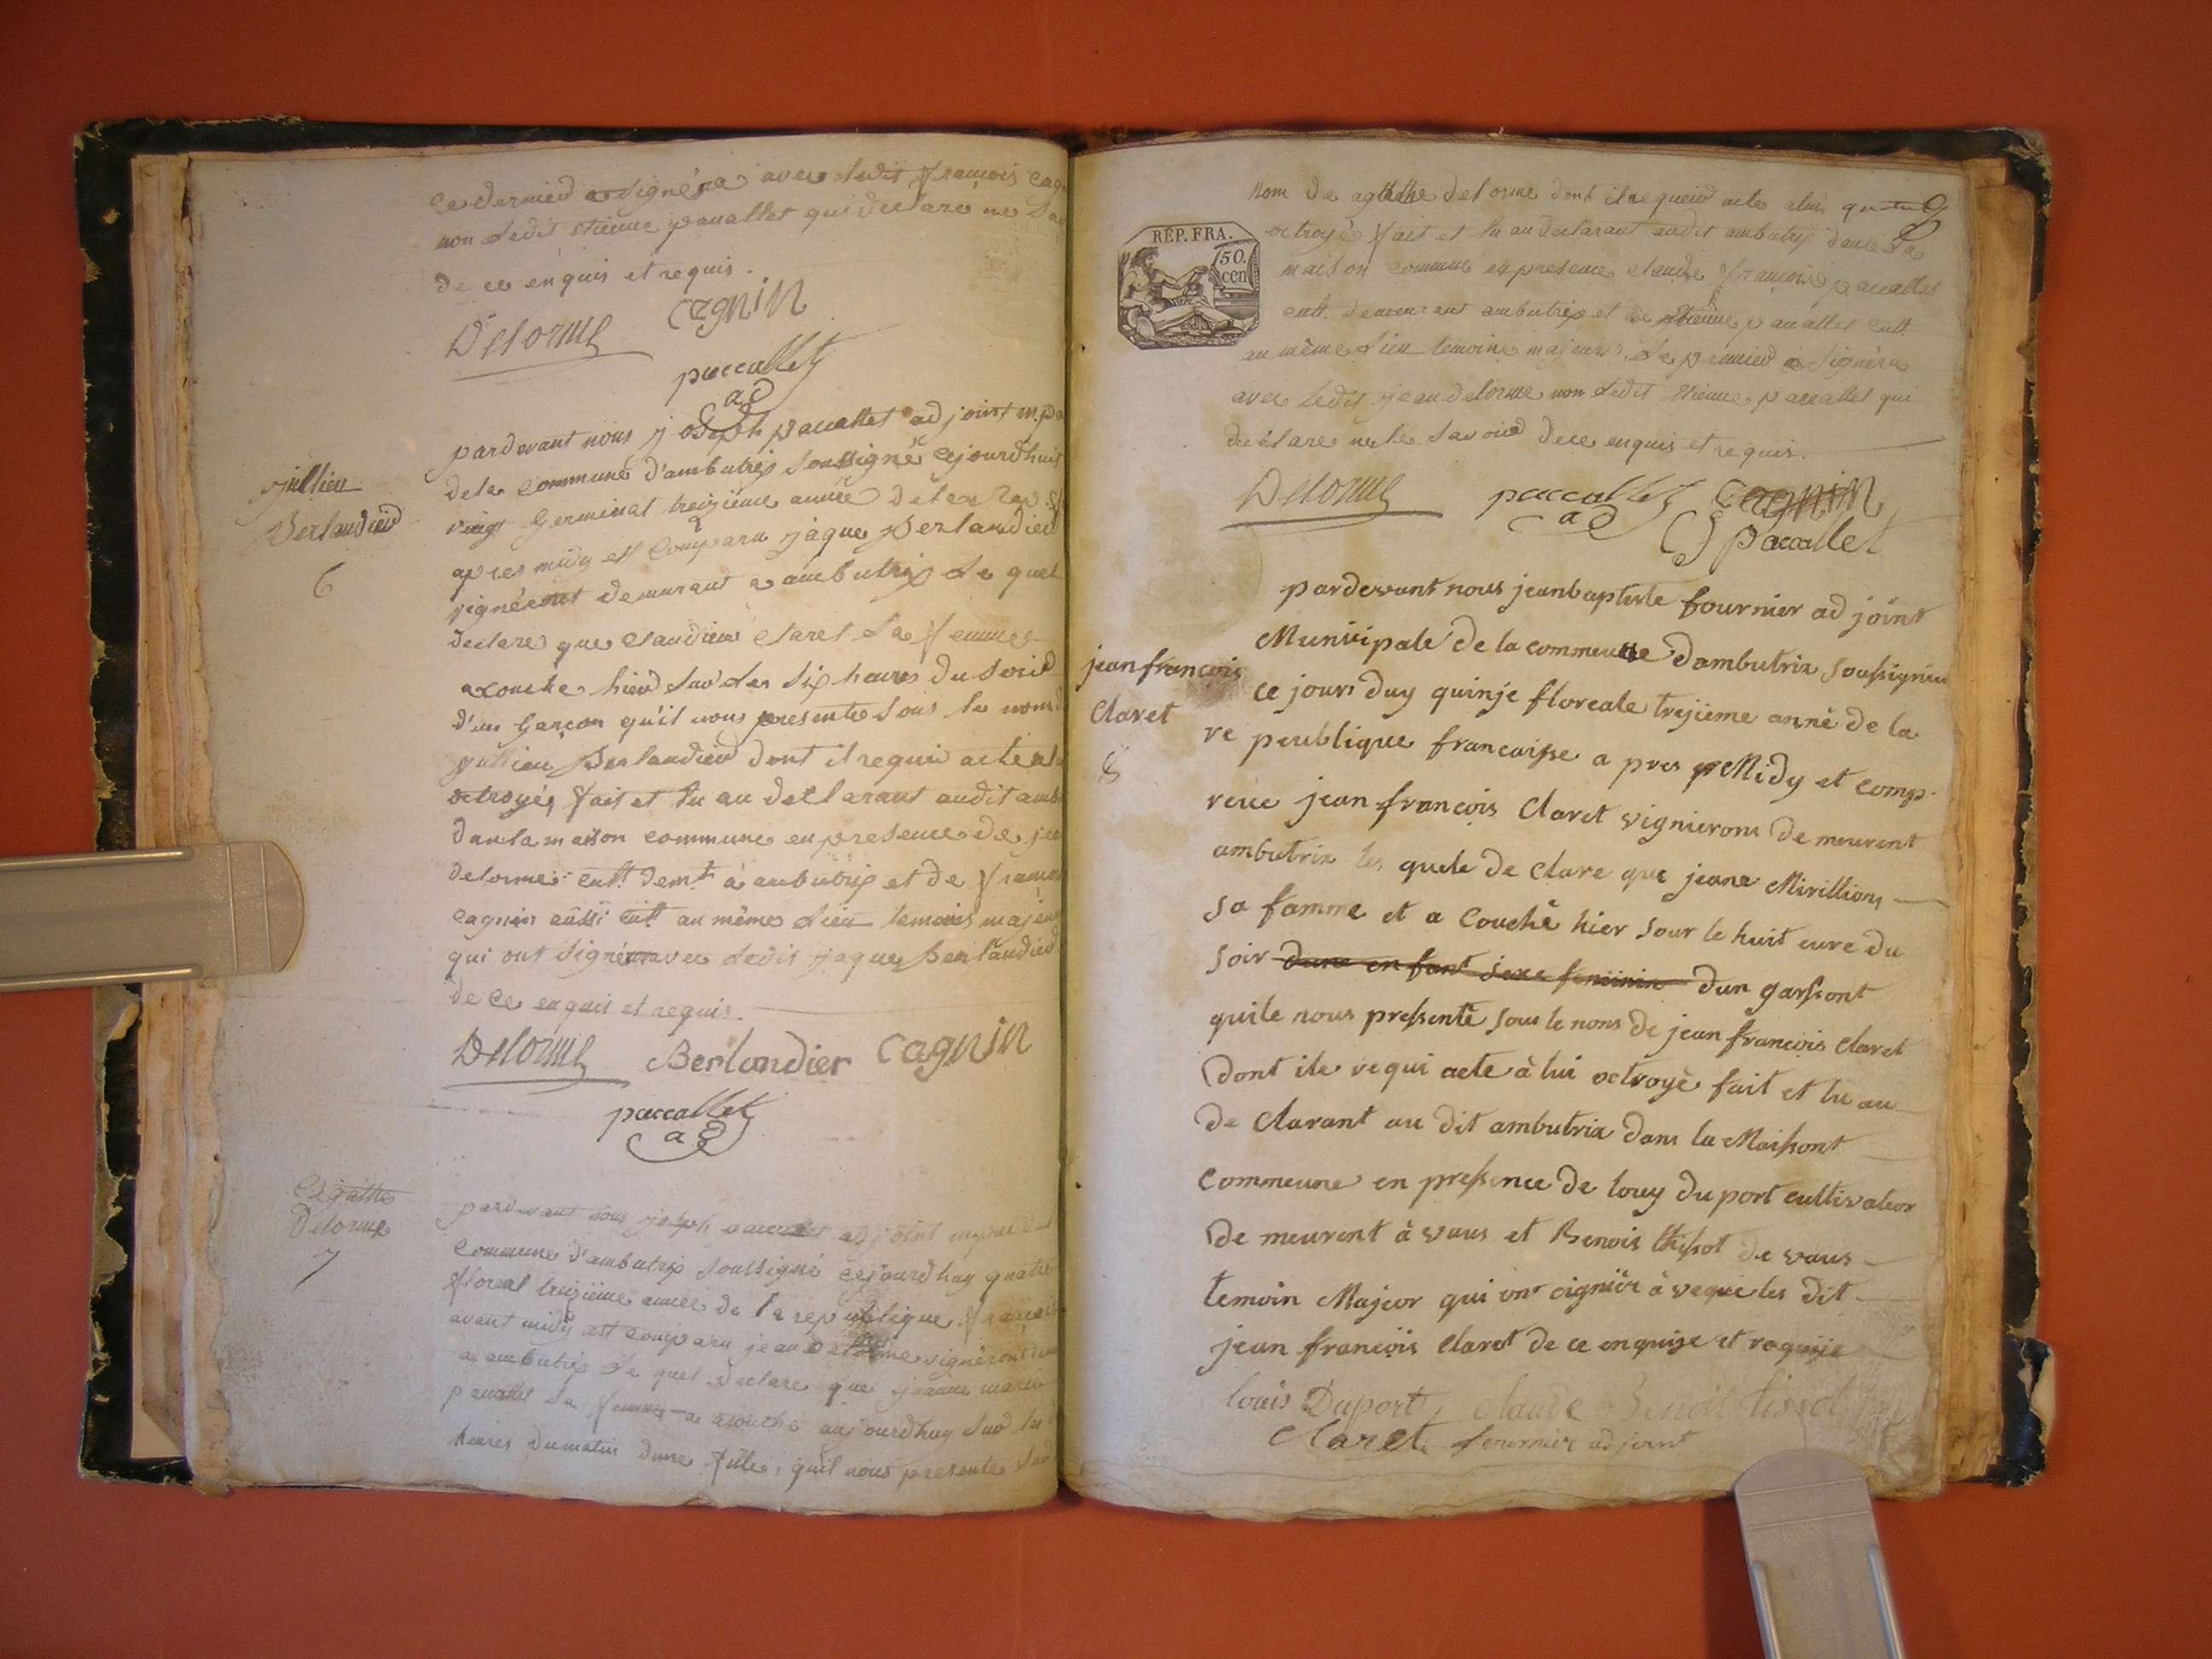 ce dernier a signé avec ledit françois cagn
non ledit etienne paccallet qui declare ne sav
de ce enquis et requis.
Delorme cagnin
paccallet
ad
jullien
Berlandier
6
pardevant nous joseph paccallet adjoint m.pa
dela commune d'ambutrix soussigné cejourdhuit
vingt Germinal treizieme année dela rep. f
apres midy est comparu jaque Berlandier
vigneront demurant a ambutrix le quel
declare que claudine claret sa femme
acouche hier sur les six heures du soir
d'un Garçon qu'il nous presente sous le nom d
jullien Berlandier dont il requis acte al
octroyé, fait et lu au declarant audit amb
dans la maison commune en presence de jea
delorme cult. demt. à ambutrix et de françoi
cagnin aussi cult au même lieu temoins majeu
qui ont signé avec ledit jaque Berlandier
de ce enquis et requis.
Delorme Berlandier cagnin
paccallet
ad
agathe
Delorme
7
pardevant nous joseph paccallet adjoint
commune d'ambutrix soussigné cejourdhuy quatre
floreal treizieme année de la republique françai
avant midy est comparu jean Delorme vigneront
a ambutrix le quel declare que jeanne marie
paccallet sa femme a acouché aujourdhuy sur les
heures du matin dune fille, quil nous presente sou
nom de agathe delorme dont il requeir acte alui
RÉP. FRA.
50.
cen
octroyé fait et lu au declarant audit ambutrix dans la
maison commune en presence claude françois paccallet
cult. demeurant ambutrix et de etienne paccallet cult
au même lieu temoins majeurs, le premier a signé
avec ledit jean delorme non ledit etienne paccallet qui
declare ne le savoir de ce enquis et requis.
Delorme paccallet cagnin
ad
paccallet
pardevant nous jeanbaptiste fournier ad joint
Municipale de la commeune dambutrix soussignieu
jean françois
Claret
8
ce jours duy quinje floreale trejieme anné de la
re peublique francaisse a pres Midy et comp
reue jean françois Claret vignierons de meurent
ambutrix les quele de clare que jeane Mirillions
sa famme et a couché hier sour le huit eure du
soir dune en fant sexe feminin dun garssont
quile nous pressenté sous le nons de jean françois Claret
dont ile re qui acte à lui octroyé fait et lu au
de clarant au dit ambutrix dans la Maissont
commeune en pressence de louy du port cultivateor
de meurent à vaus et Benois thissot de vaus
temoin Majeor qui ont cignier à veque les dit
jean françois Claret de ce enquise et requise
louis Duport claude Benoit tissot
Claret fournier adjoint